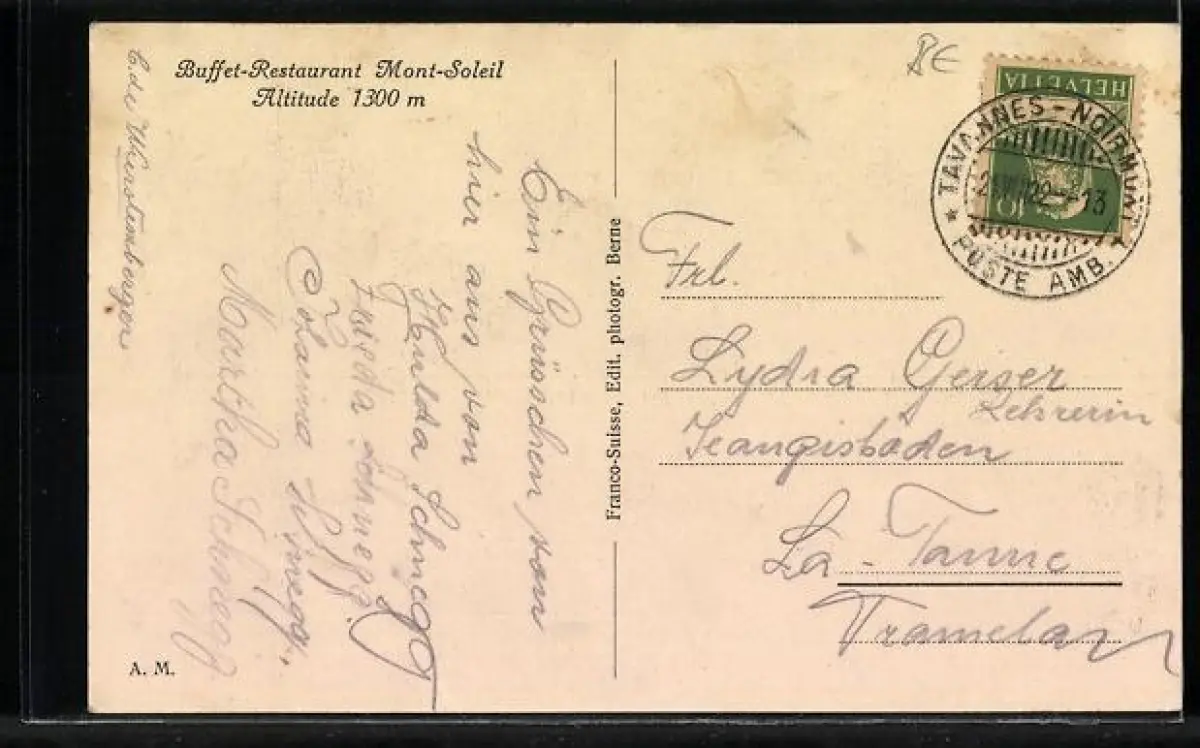 Buffet-Restaurant Mont-Soleil
Altitude 1300 m
Ein Grüsschen vom
hier aus von
Hulda Schnegg
Frieda Schnegg
Schnegg,
Martha Schnegg
A. M.
Franco-Suisse, Edit. photogr. Berne
BE
HELVETIA
10
TAVANNES - NOIRMONT
POSTE AMB.
Frl.
Lydia Geiser
Lehrerin
La - Tanne
Tramelan